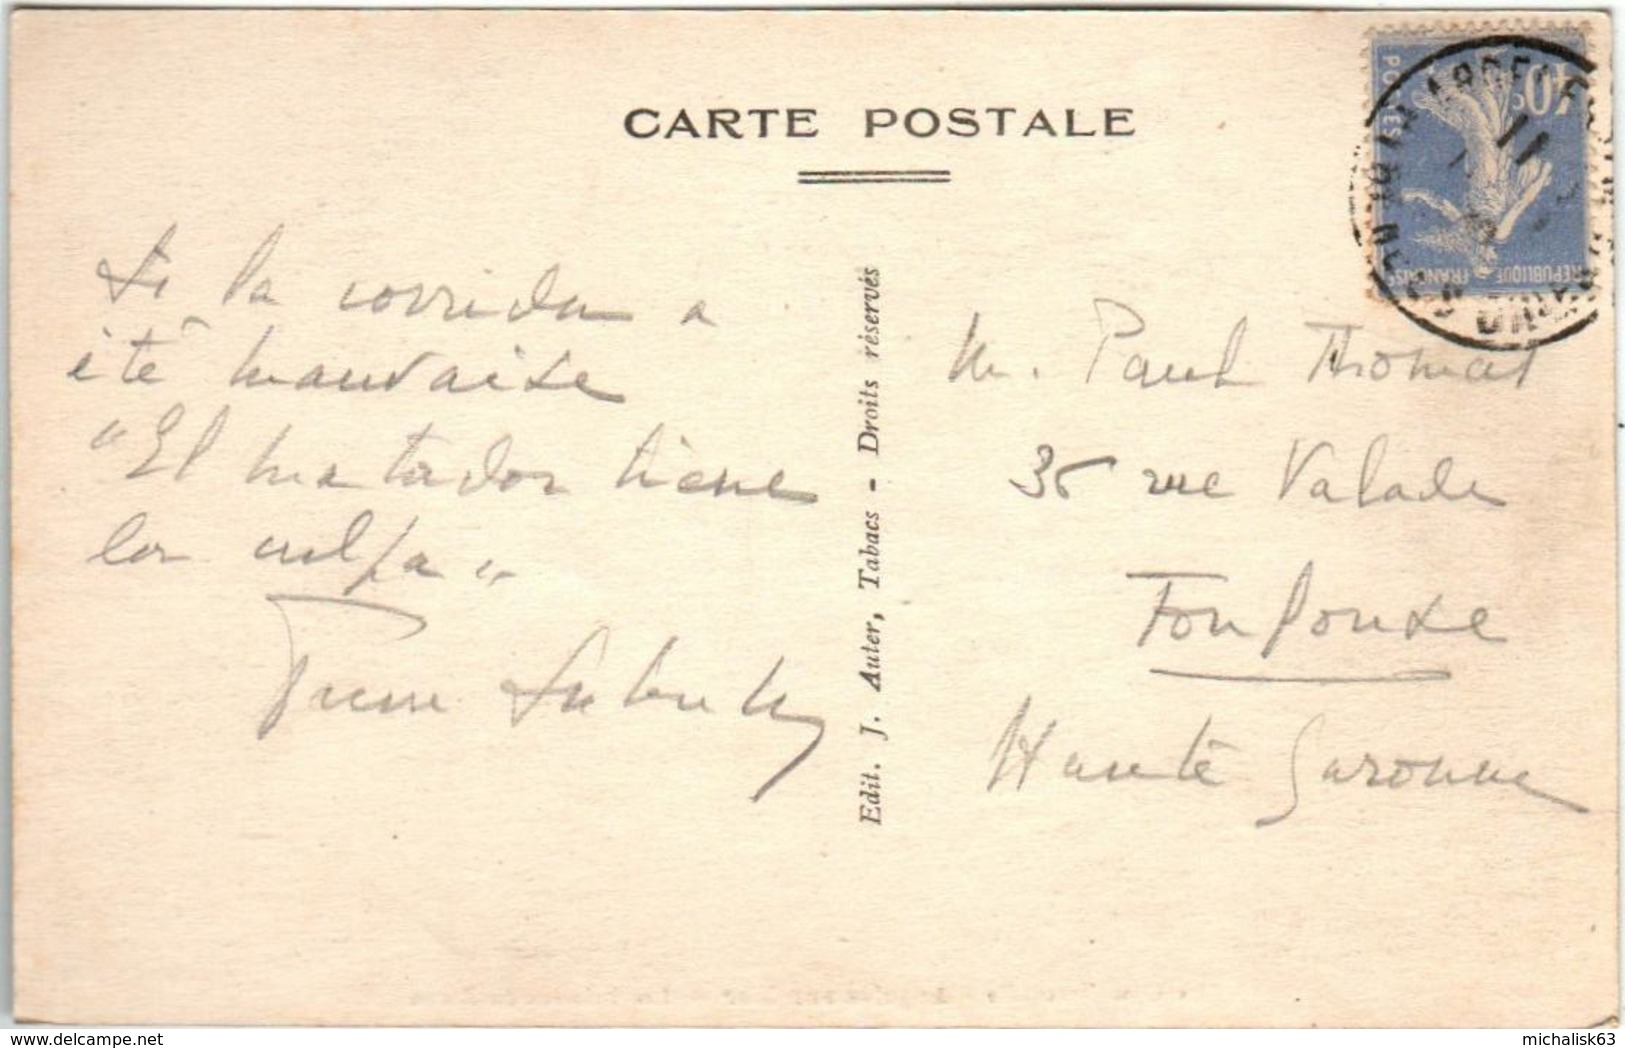 CARTE POSTALE
Si la corrida a
été mauvaise
"El matador tiene
la culpa"
Pierre
Edit. J. Auter, Tabacs - Droits réservés
M. Paul Thomas
35 rue Valade
Toulouse
Haute Garonne
40c
POSTES
REPUBLIQUE FRANÇAISE
delcampe.net
michalisk63